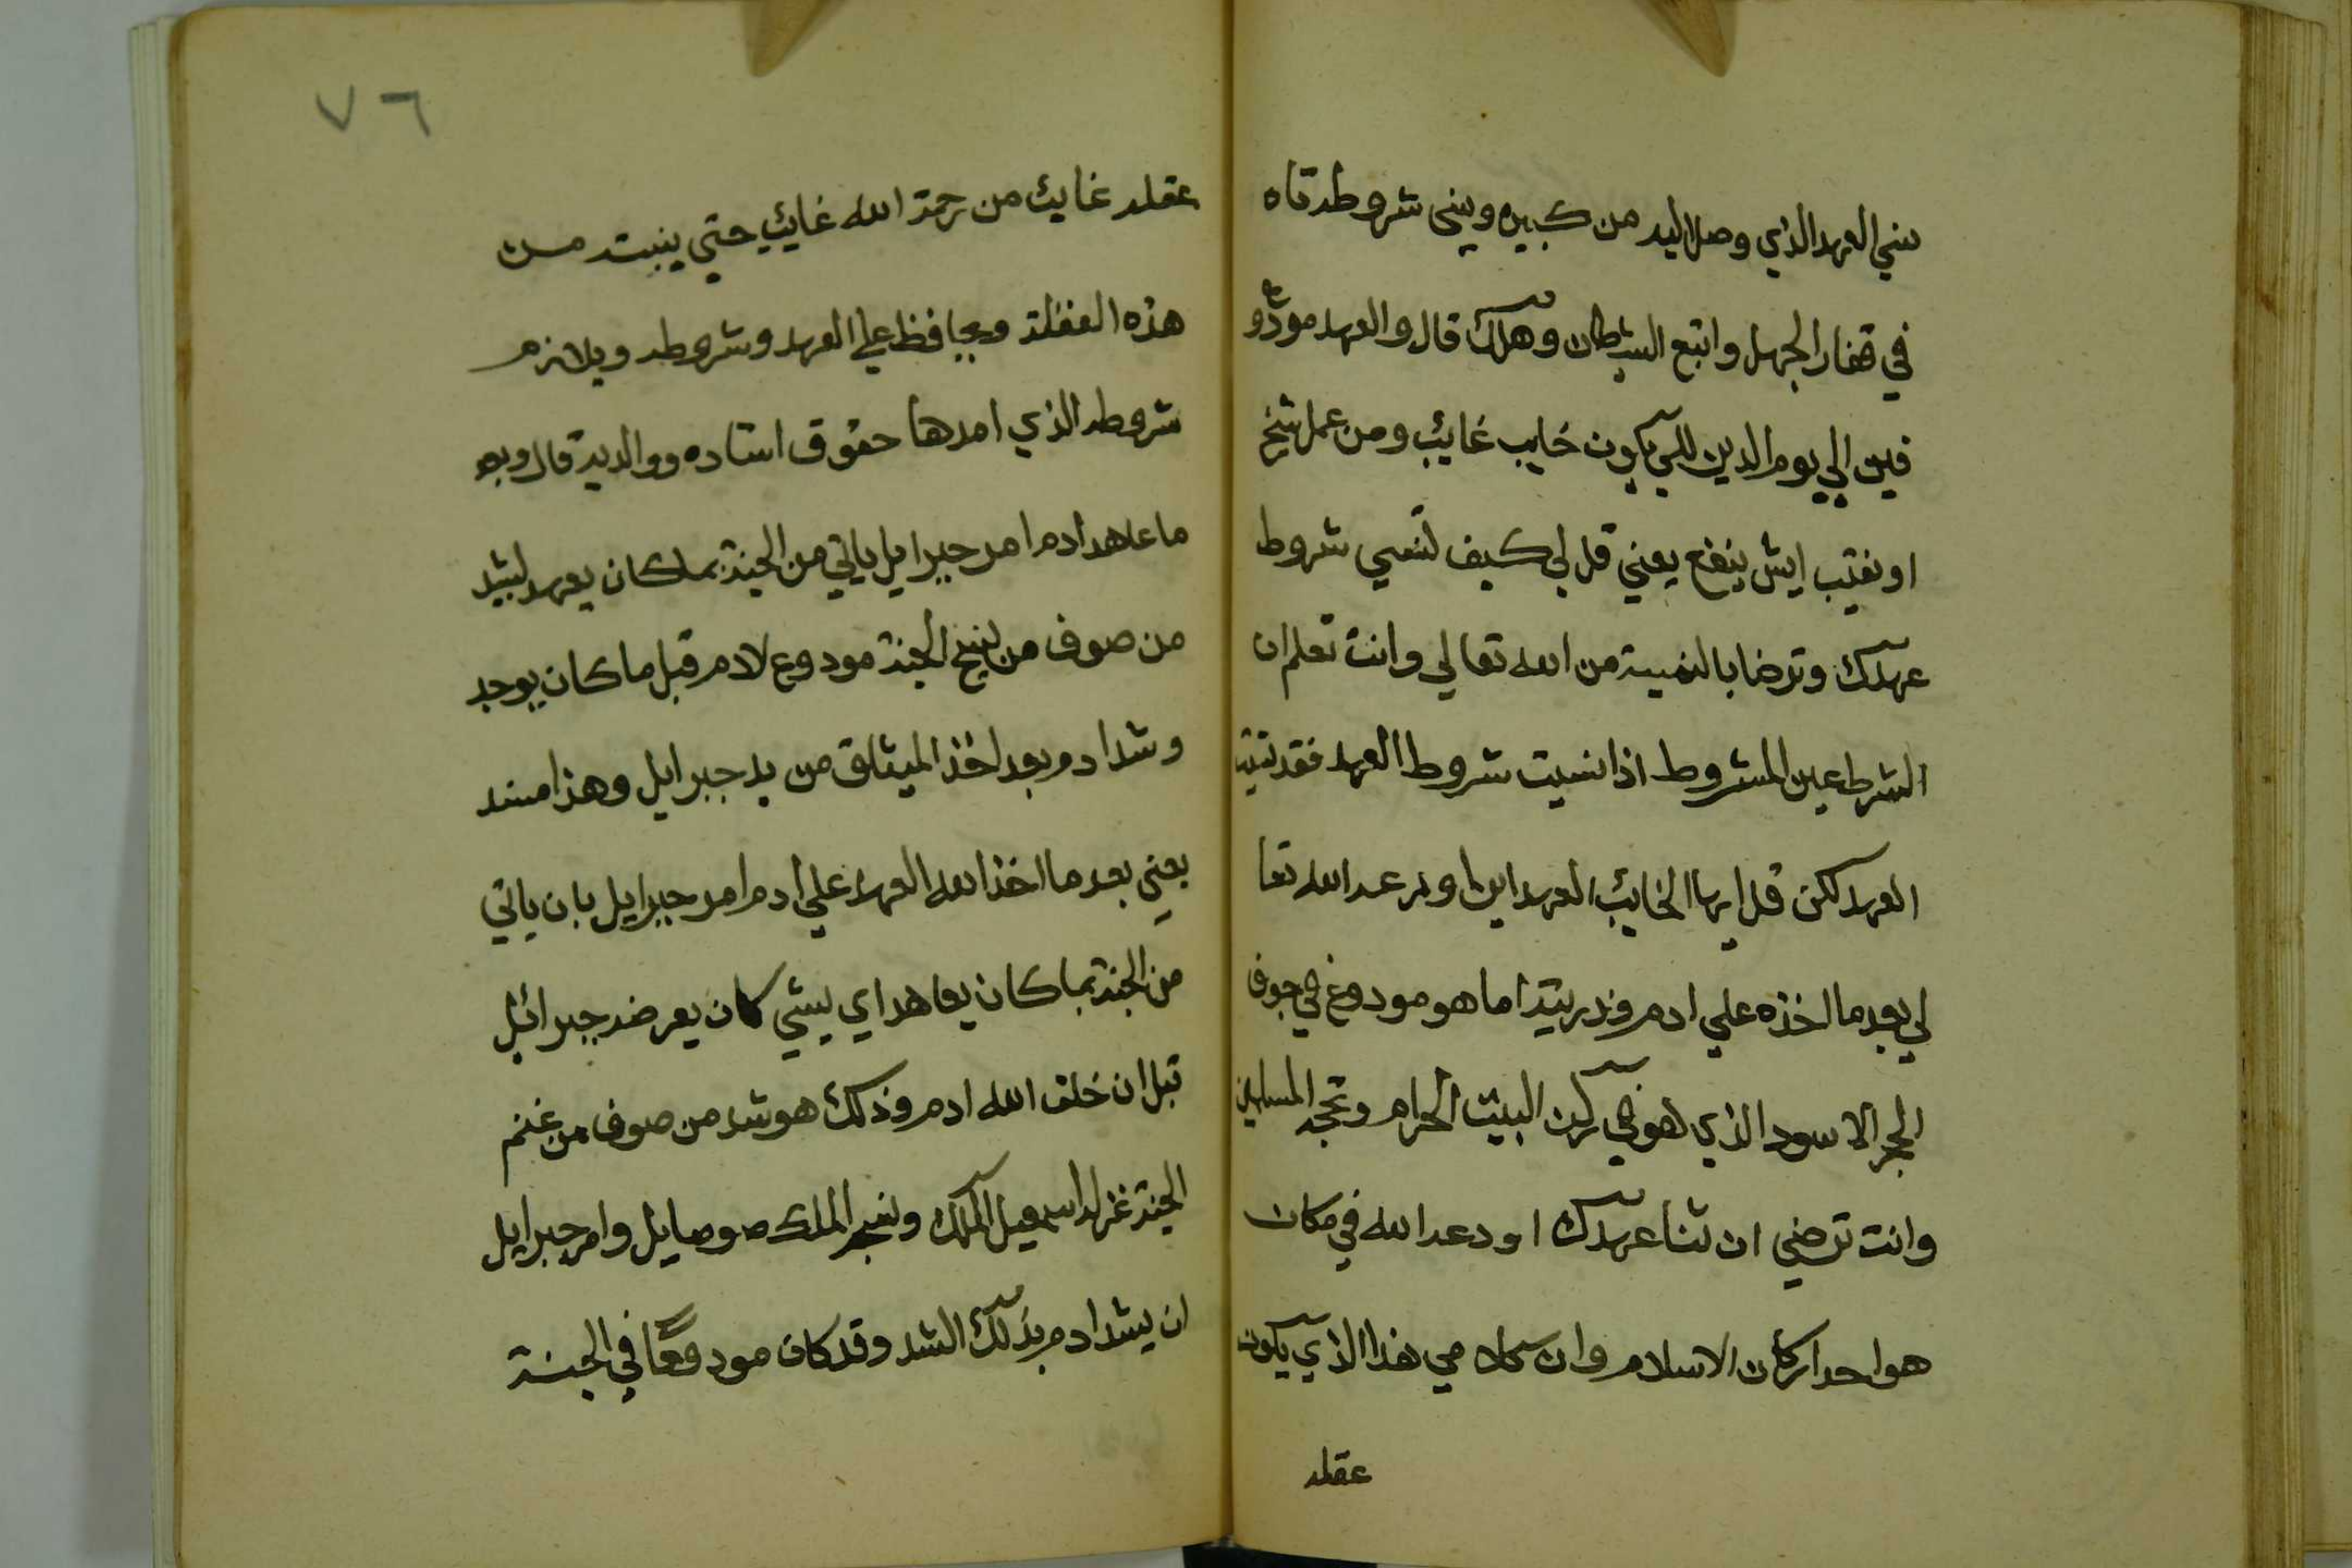 نسي العهد الذي وصل اليه من كبيره ونسي شروطه تاه
في قفار الجهل واتبع الشيطان وهلك قال والعهد مودوع
فين الي يوم الدين للي يكون خايب غايب ومن عمل شيخ
او نقيب ايش ينفع يعني قل لي كيف تنسي شروط
عهدك وترضا بالخيبة من الله تعالي وانت تعلم ان
الشرط عين المشروط اذا نسيت شروط العهد فقد نسيت
العهد لكن قل ايها الخايب العهد اين اودعه الله تعا
لي بعد ما اخذه علي ادم وذريته اما هو مودوع في جوف
الحجر الاسود الذي هو في ركن البيت الحرام وتحجه المسلمين
وانت ترضي ان تنسا عهدك اودعه الله في مكان
هو احد اركان الاسلام وان كلامي هذا الذي يكون
عقله
٧٦
عقله غايب من رحمة الله غايب حتي ينبته من
هذه الغفلة ويحافظ علي العهد وشروطه ويلازم
شروطه الذي احدها حقوق استاده ووالديه قال وبعد
ما عاهد ادم امر جبرايل ياتي من الجنة بما كان يعهد لشد
من صوف من الجنة مودوع لادم قبل ما كان يوجد
وشد ادم بعد اخذ الميثاق من يد جبرايل وهذا منه
يعني بعد ما اخذ الله العهد علي ادم امر جبرايل بان ياتي
من الجنة بما كان يعاهد اي بشي كان يعرضه جبرائيل
قبل ان خلق الله ادم وذلك هو شد من صوف من غنم
الجنة غزله اسمعيل الملك ونسجه الملك صوصايل وامر جبرايل
ان يشد ادم بذلك الشد وقد كان مودوعًا في الجنة